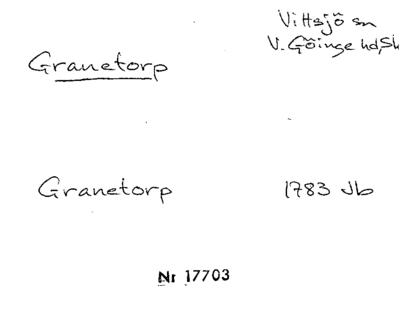 Vittsjö sn
V. Göinge hd, Sk
Granetorp
Granetorp 1783 Jb
Nr 17703